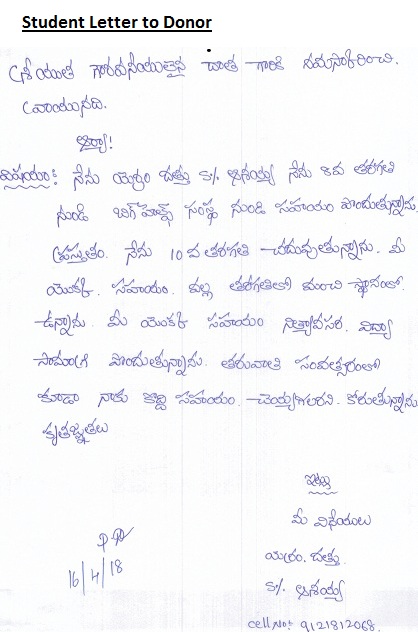 Student Letter to Donor
శ్రీయుత గౌరవనీయులైన దాత గారికి నమస్కరించి.
వ్రాయునది.
ఆర్యా!
విషయం: నేను యర్రం దత్తు S/o ఆశయ్య నేను 8వ తరగతి
నుండి బిగ్ హెల్ప్ సంస్థ నుండి సహాయం పొందుతున్నాను.
ప్రస్తుతం. నేను 10 వ తరగతి చదువుతున్నాను. మీ
యొక్క సహాయం. వల్ల తరగతిలో మంచి స్థానంలో.
ఉన్నాను. మీ యొక్క సహాయం నిత్యావసర. విద్యా
సామాగ్రి పొందుతున్నాను. తరువాతి సంవత్సరంలో
కూడా నాకు కొద్ది సహాయం. చెయ్యగలరని. కోరుతున్నాను
కృతజ్ఞతలు
ఇట్లు
మీ విధేయులు
యర్రం. దత్తు.
S/o. ఆశయ్య
16/4/18
cell No: 9121812068.